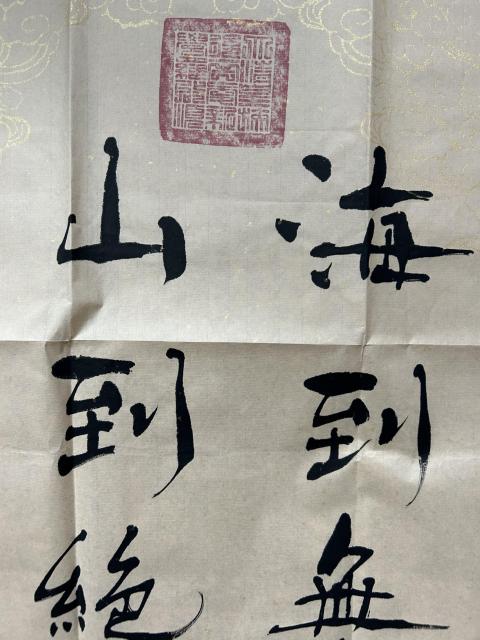 海到無
山到絶